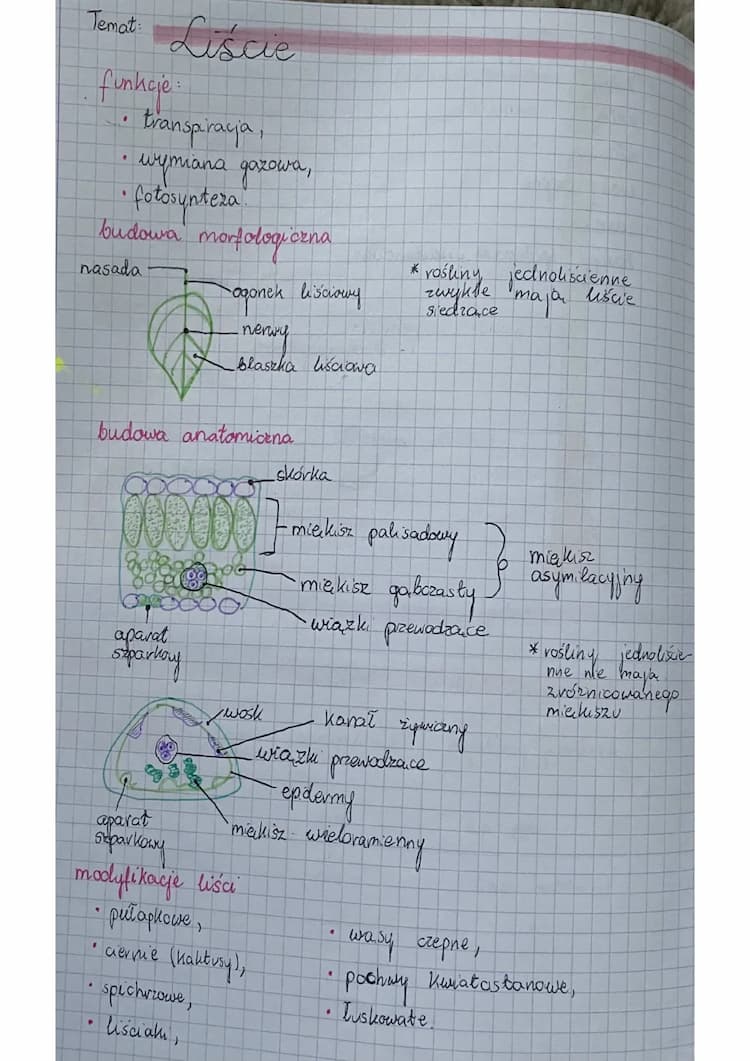 Temat: Liście
funkcje:
• transpiracja,
• wymiana gazowa,
• fotosynteza.
budowa morfologiczna
nasada
ogonek liściowy
nerwy
blaszka liściowa
* rośliny jednoliścienne
zwykle mają liście
siedzące
budowa anatomiczna
skórka
miękisz palisadowy
miękisz gąbczasty
wiązki przewodzące
miękisz
asymilacyjny
aparat
szparkowy
* rośliny jednoliście-
nne nie mają
zróżnicowanego
miękiszu
wosk
kanał żywiczny
wiązki przewodzące
epidermy
aparat
szparkowy
miękisz wieloramienny
modyfikacje liści
• pułapkowe,
• ciernie (kaktusy),
• spichrzowe,
• liściaki,
• wąsy czepne,
• pochwy kwiatostanowe,
• łuskowate.